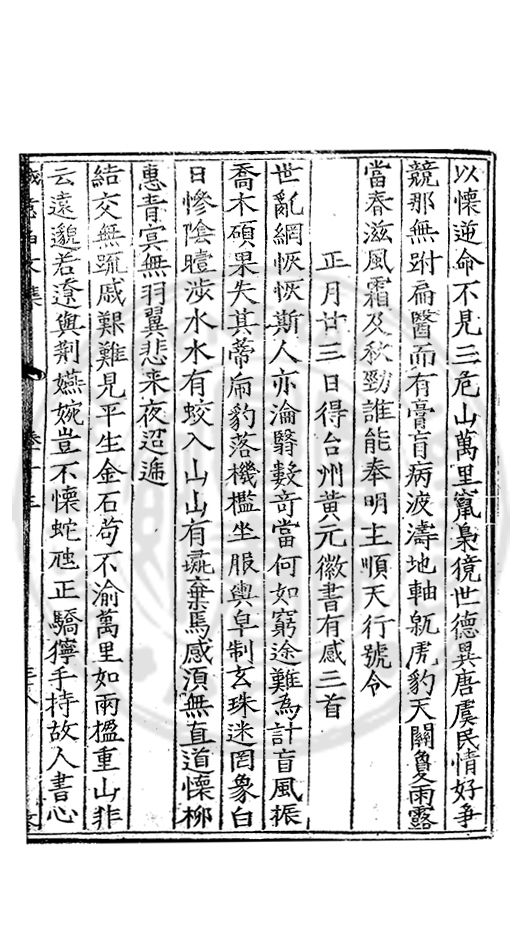 以懷逆命不見三危山萬里竄梟獍世德異唐虞民情好爭
競那無跗扁醫而有膏肓病波濤地軸虎豹天關夐雨露
當春滋風霜及秋勁誰能奉明主順天行號令
正月廿三日得台州黃元徽書有感三首
世亂網恢恢斯人亦淪翳數奇當何如窮途難為計盲風振
喬木碩果失其蒂豹落機檻坐服輿皁制玄珠迷罔象白
日慘陰曀涉水水有蛟入山山有彘棄馬感湏無直道懷柳
惠青冥無羽翼悲来夜迢遞
結交無踈戚艱難見平生金石苟不渝萬里如兩楹重山非
云遠邈若遼與荆嬿婉豈不懷蛇虺正驕獰手持故人書心